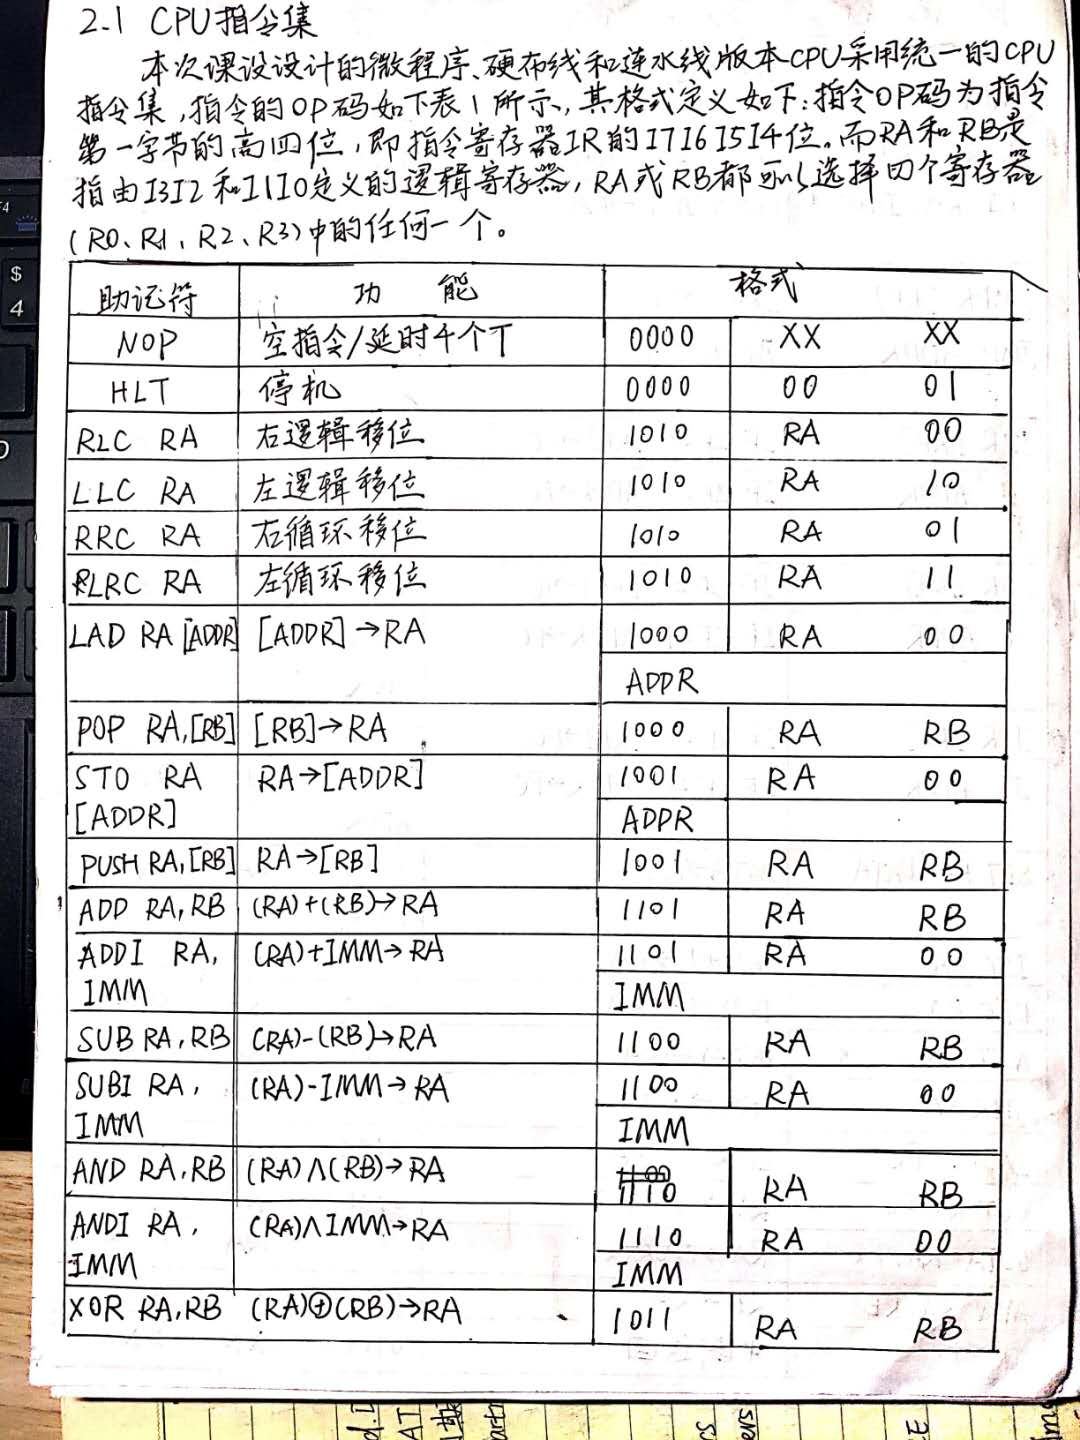 2.1 CPU指令集
本次课设设计的微程序、硬布线和连水线版本CPU采用统一的CPU
指令集,指令的OP码如下表1所示,其格式定义如下:指令OP码为指令
第一字节的高四位,即指令寄存器IR的I7I6I5I4位。而RA和RB是
指由I3I2和I1I0定义的逻辑寄存器,RA或RB都可以选择四个寄存器
(R0、R1、R2、R3)中的任何一个。
助记符 功能 格式
NOP 空指令/延时4个T 0000 XX XX
HLT 停机 0000 00 01
RLC RA 右逻辑移位 1010 RA 00
LLC RA 左逻辑移位 1010 RA 10
RRC RA 右循环移位 1010 RA 01
LRC RA 左循环移位 1010 RA 11
LAD RA [ADDR] [ADDR]→RA 1000 RA 00
ADDR
POP RA,[RB] [RB]→RA 1000 RA RB
STO RA RA→[ADDR] 1001 RA 00
[ADDR] ADDR
PUSH RA,[RB] RA→[RB] 1001 RA RB
ADD RA,RB (RA)+(RB)→RA 1101 RA RB
ADDI RA, (RA)+IMM→RA 1101 RA 00
IMM IMM
SUB RA,RB (RA)-(RB)→RA 1100 RA RB
SUBI RA, (RA)-IMM→RA 1100 RA 00
IMM IMM
AND RA,RB (RA)∧(RB)→RA 1110 RA RB
ANDI RA, (RA)∧IMM→RA 1110 RA 00
IMM IMM
XOR RA,RB (RA)⊕(RB)→RA 1011 RA RB
F4
$
4